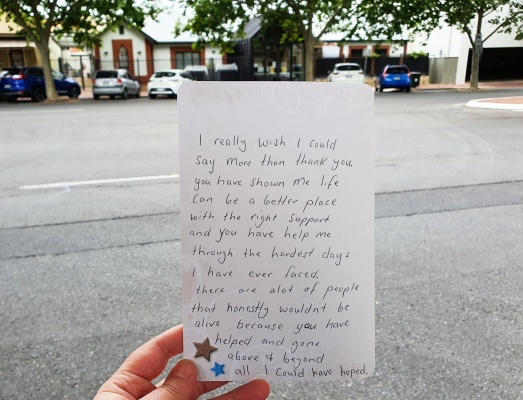 I really wish I could
say more than thank you.
you have shown me life
can be a better place
with the right support
and you have help me
through the hardest days
I have ever faced.
there are alot of people
that honestly wouldn't be
alive because you have
helped and gone
above & beyond
all I could have hoped.